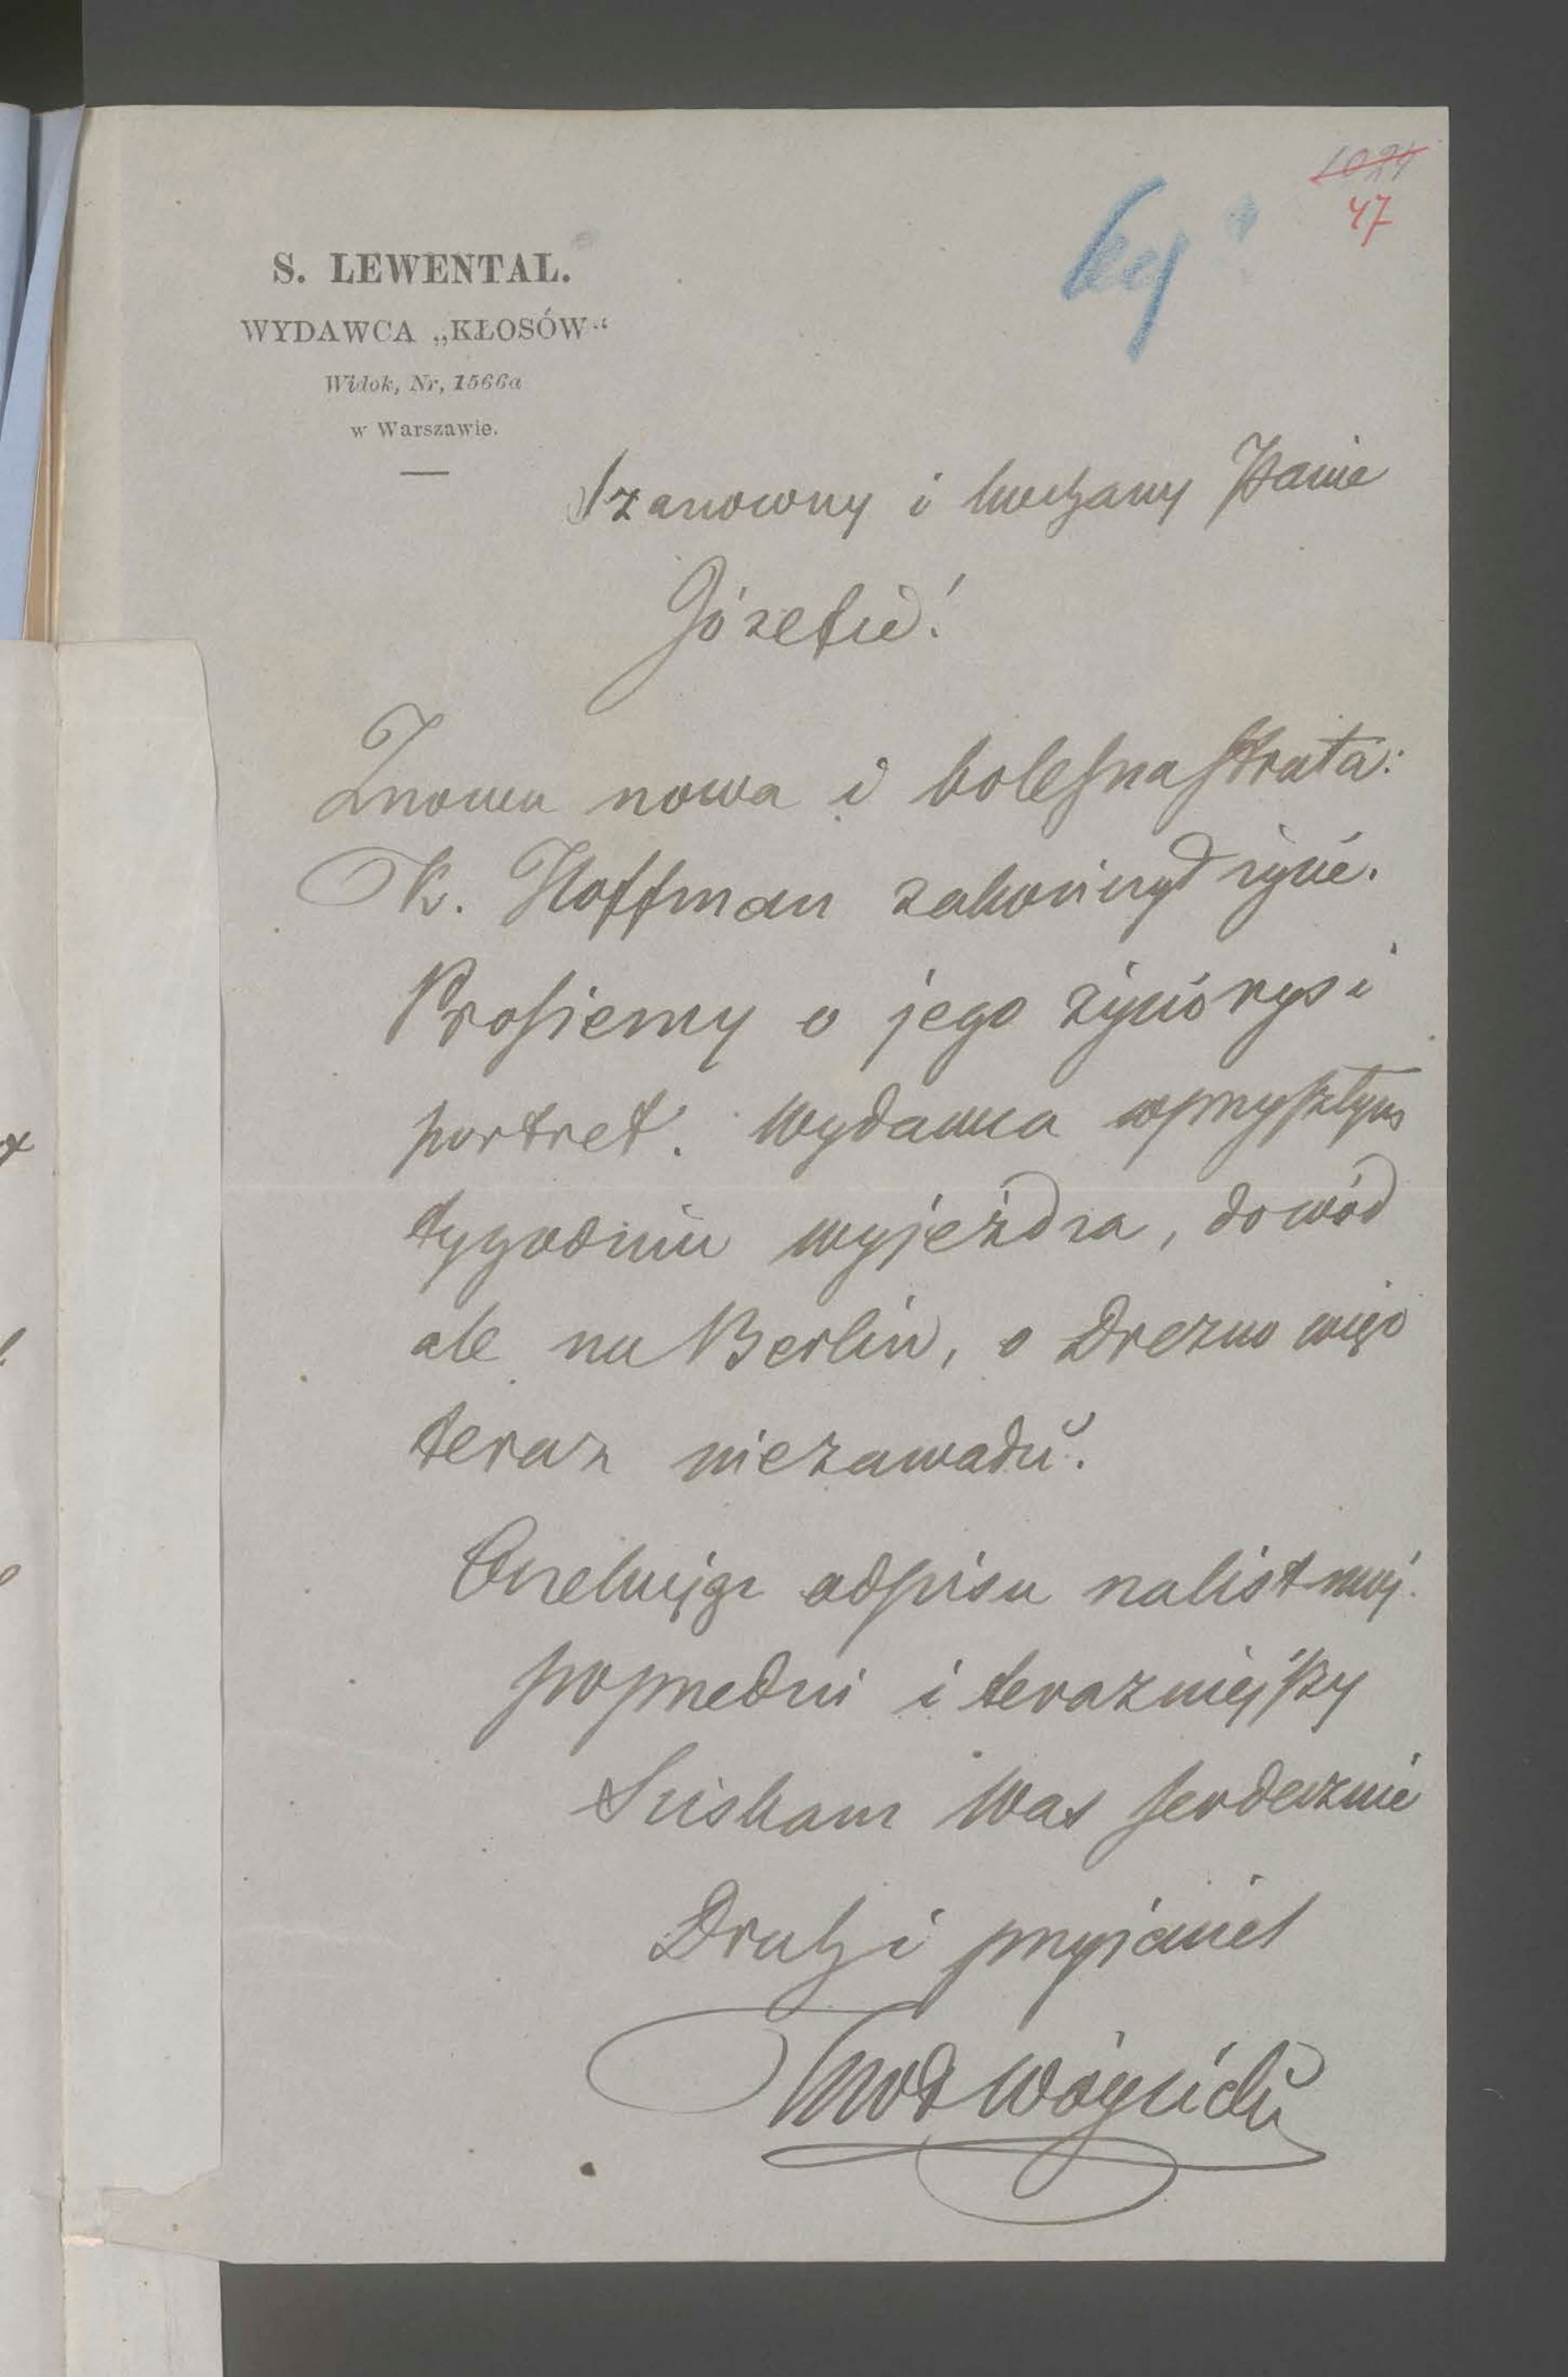 1024
47
S. LEWENTAL.
WYDAWCA „KŁOSÓW“
Widok, Nr, 1566a
w Warszawie.
Szanowny i kochany Panie
Józefie!
Znowu nowa i bolesna strata:
K. Hoffman zakończył życie.
Prosiemy o jego życiorys i
portret. Wydawca w przyszłym
tygodniu wyjeżdza, do wód
ale na Berlin, o Drezno więc
teraz niezawadzi.
Oczekując odpisu na list mój
poprzedni i terazniejszy
Sciskam Was serdecznie
Druh i przyjaciel
KWł Wóycicki